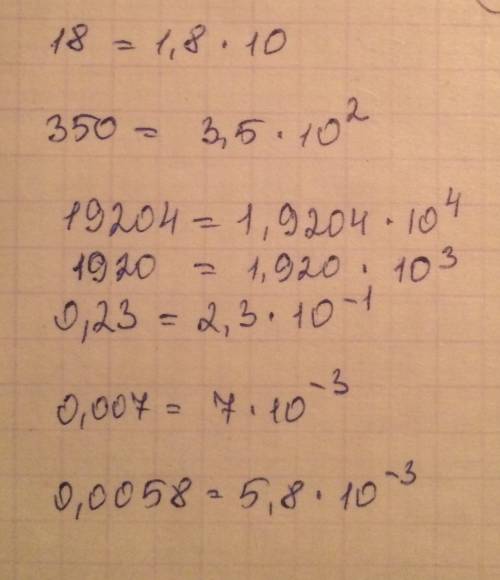 18 = 1,8 · 10
350 = 3,5 · 10²
19204 = 1,9204 · 10⁴
1920 = 1,920 · 10³
0,23 = 2,3 · 10⁻¹
0,007 = 7 · 10⁻³
0,0058 = 5,8 · 10⁻³